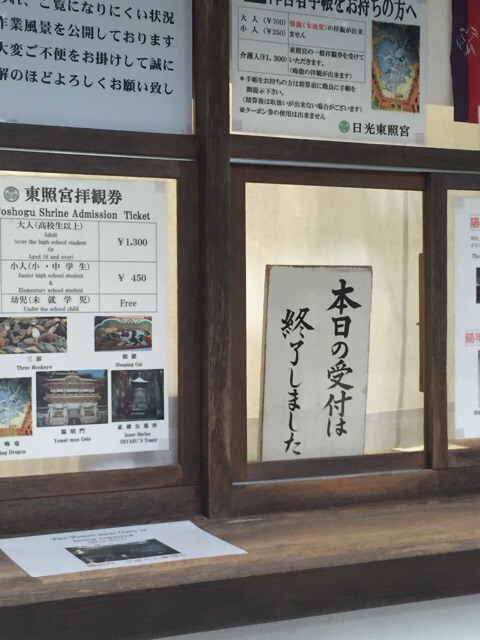 ご覧になりにくい状況
作業風景を公開しております
大変ご不便をお掛けして誠に
解のほどよろしくお願い致し
手帳をお持ちの方へ
大人 (¥700)
小人 (¥250)
鳴龍(本地堂)の拝観が出来
ません
介護人(¥1,300)
東照宮の一般拝観券を受けて
いただきます。
(鳴龍の拝観が出来ます)
*手帳をお持ちの方は精算前に職員に手帳を
御提示下さい。
(精算後は取扱いが出来ない場合がございます)
※クーポン券の使用は出来ません
日光東照宮
東照宮拝観券
oshogu Shrine Admission Ticket
大人(高校生以上)
Adult
(over the high school student
Or
Aged 16 and over)
¥1,300
小人(小・中学生)
Junior high school student
&
Elementary school student
¥ 450
幼児(未就学児)
Under the school child
Free
三猿
Three Monkeys
眠猫
Sleeping Cat
鳴竜
ing Dragon
陽明門
Yomei-mon Gate
家康公墓所
Inner Shrine
(IEYASU'S Tomb)
本日の受付は
終了しました